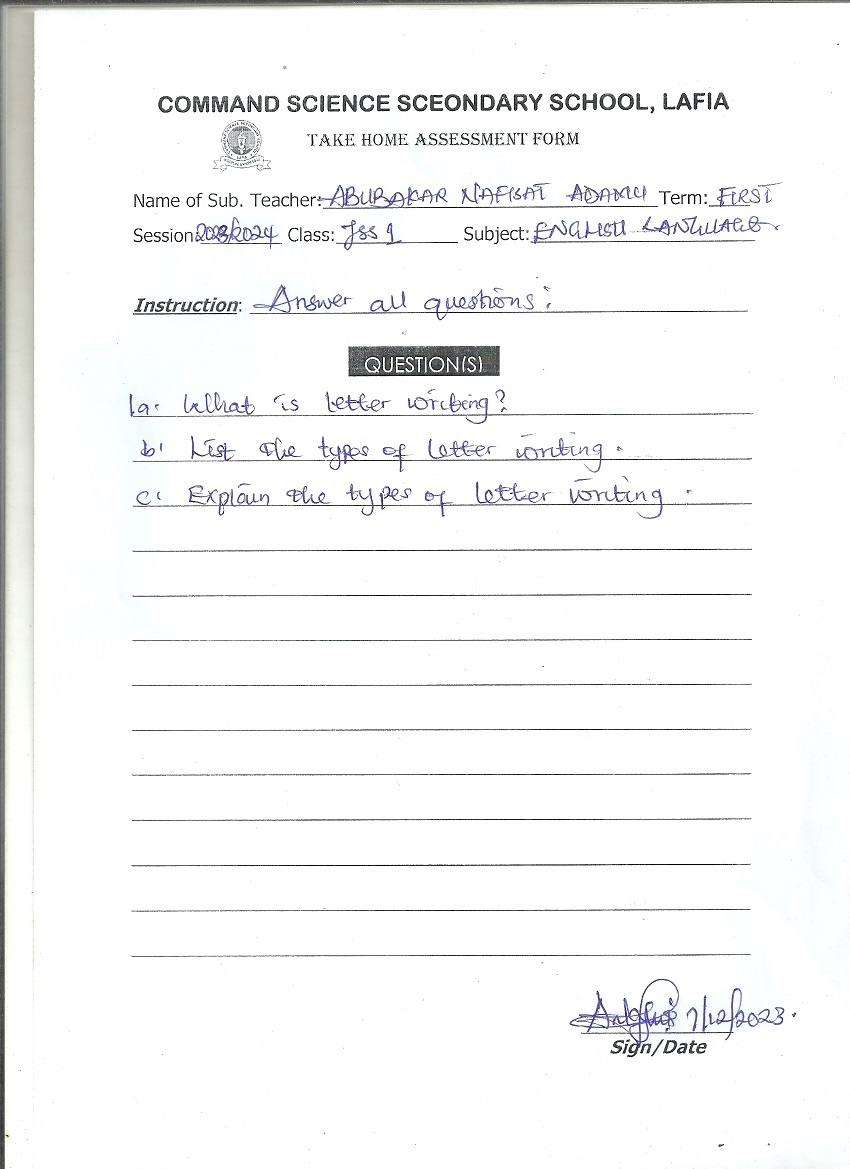 COMMAND SCIENCE SCEONDARY SCHOOL, LAFIA
TAKE HOME ASSESSMENT FORM
Name of Sub. Teacher: ABUBAKAR NAFISAT ADAMU Term: FIRST
Session 2023/2024 Class: JSS 1 Subject: ENGLISH LANGUAGE.
Instruction: Answer all questions:
QUESTION(S)
1a. What is letter writing?
b. List the types of letter writing.
c. Explain the types of letter writing.
7/12/2023.
Sign/Date